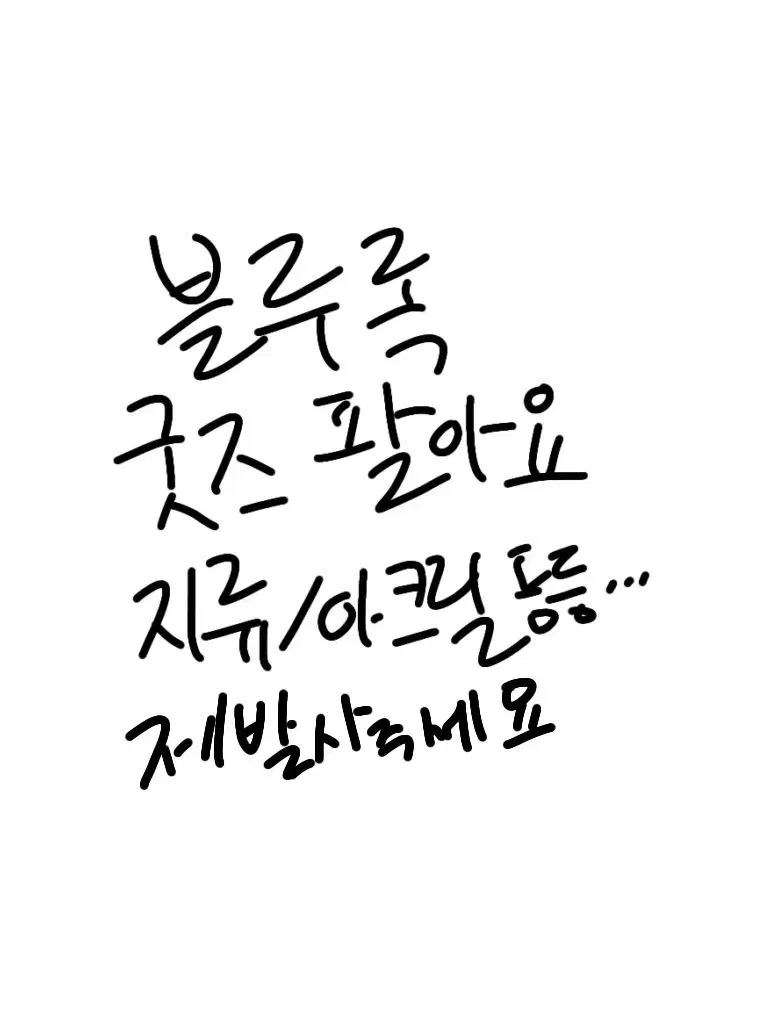 블루록
굿즈 팔아요
지류/아크릴 퐁등...
제발사주세요